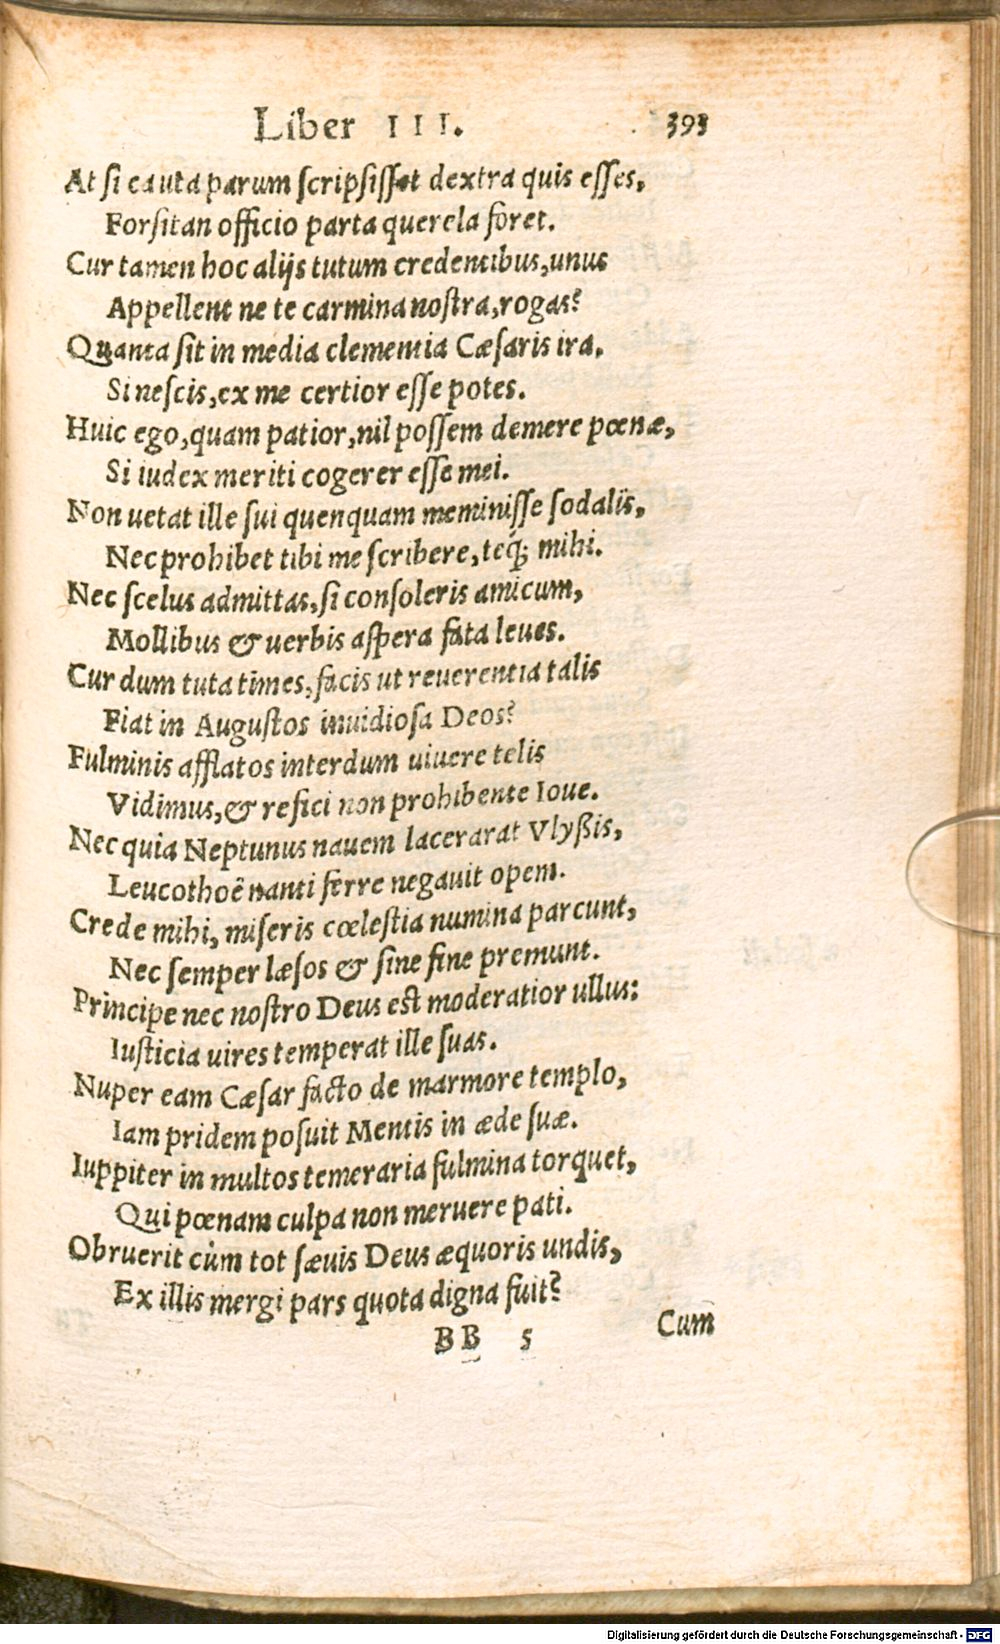 Liber III. 393
At si cauta parum scripsisset dextra quis esses,
Forsitan officio parta querela foret.
Cur tamen hoc alijs tutum credentibus, unus
Appellent ne te carmina nostra, rogas?
Quanta sit in media clementia Cæsaris ira.
Si nescis, ex me certior esse potes.
Huic ego, quam patior, nil possem demere pœnæ,
Si iudex meriti cogerer esse mei.
Non uetat ille sui quenquam meminisse sodalis,
Nec prohibet tibi me scribere, teq́; mihi.
Nec scelus admittas, si consoleris amicum,
Mollibus & uerbis aspera fata leues.
Cur dum tuta times, facis ut reuerentia talis
Fiat in Augustos inuidiosa Deos?
Fulminis afflatos interdum uiuere telis
Vidimus, & refici non prohibente Ioue.
Nec quia Neptunus nauem lacerarat Vlyßis,
Leucothoë nanti ferre negauit opem.
Crede mihi, miseris cœlestia numina parcunt,
Nec semper læsos & sine fine premunt.
Principe nec nostro Deus est moderatior ullus:
Iusticia uires temperat ille suas.
Nuper eam Cæsar facto de marmore templo,
Iam pridem posuit Mentis in æde suæ.
Iuppiter in multos temeraria fulmina torquet,
Qui pœnam culpa non meruere pati.
Obruerit cùm tot sæuis Deus æquoris undis,
Ex illis mergi pars quota digna fuit?
BB 5 Cum
Digitalisierung gefördert durch die Deutsche Forschungsgemeinschaft - DFG